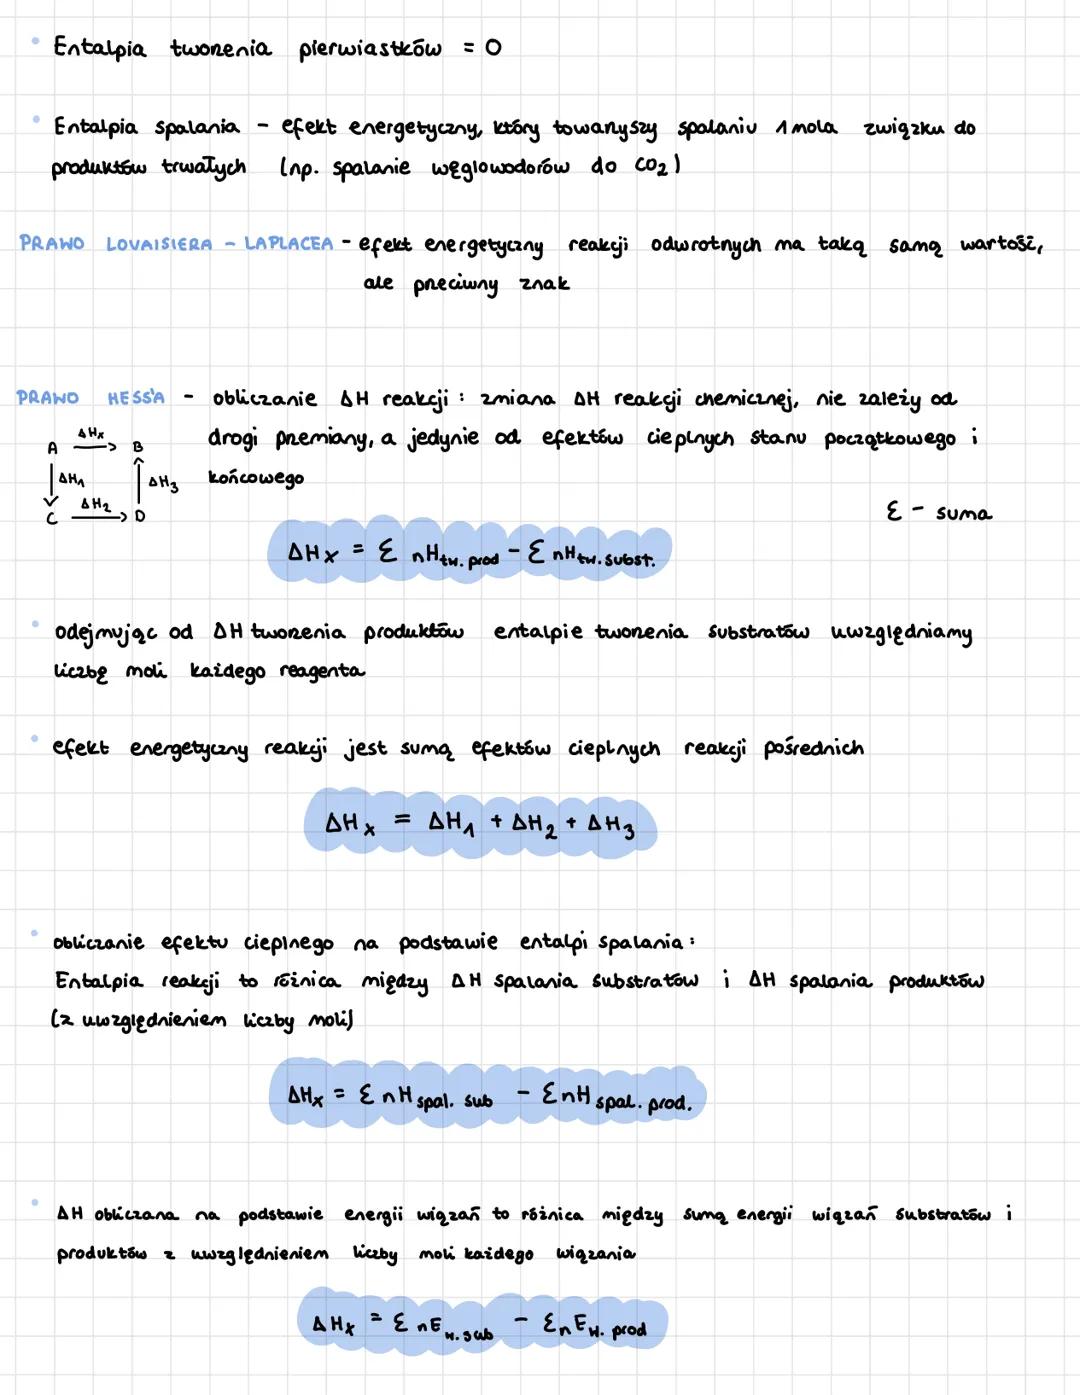 Entalpia tworzenia pierwiastków = 0
Entalpia spalania - efekt energetyczny, który towarzyszy spalaniu 1 mola związku do
produktów trwałych (np. spalanie węglowodorów do CO₂)
PRAWO LOVAISIERA - LAPLACEA - efekt energetyczny reakcji odwrotnych ma taką samą wartość,
ale przeciwny znak
PRAWO HESS'A - obliczanie ΔH reakcji : zmiana ΔH reakcji chemicznej, nie zależy od
drogi przemiany, a jedynie od efektów cieplnych stanu początkowego i
końcowego
A ΔHx B
ΔH₁ ΔH₃
C ΔH₂ D
Σ - suma
ΔHx = Σ nHtw. prod - Σ nHtw. subst.
odejmując od ΔH tworzenia produktów entalpie tworzenia substratów uwzględniamy
liczbę moli każdego reagenta
efekt energetyczny reakcji jest sumą efektów cieplnych reakcji pośrednich
ΔHx = ΔH₁ + ΔH₂ + ΔH₃
obliczanie efektu cieplnego na podstawie entalpi spalania :
Entalpia reakcji to różnica między ΔH spalania substratów i ΔH spalania produktów
(z uwzględnieniem liczby moli)
ΔHx = Σ nH spal. sub - Σ nH spal. prod.
ΔH obliczana na podstawie energii wiązań to różnica między sumą energii wiązań substratów i
produktów z uwzględnieniem liczby moli każdego wiązania
ΔHx = Σ nE w. sub - Σ nE w. prod